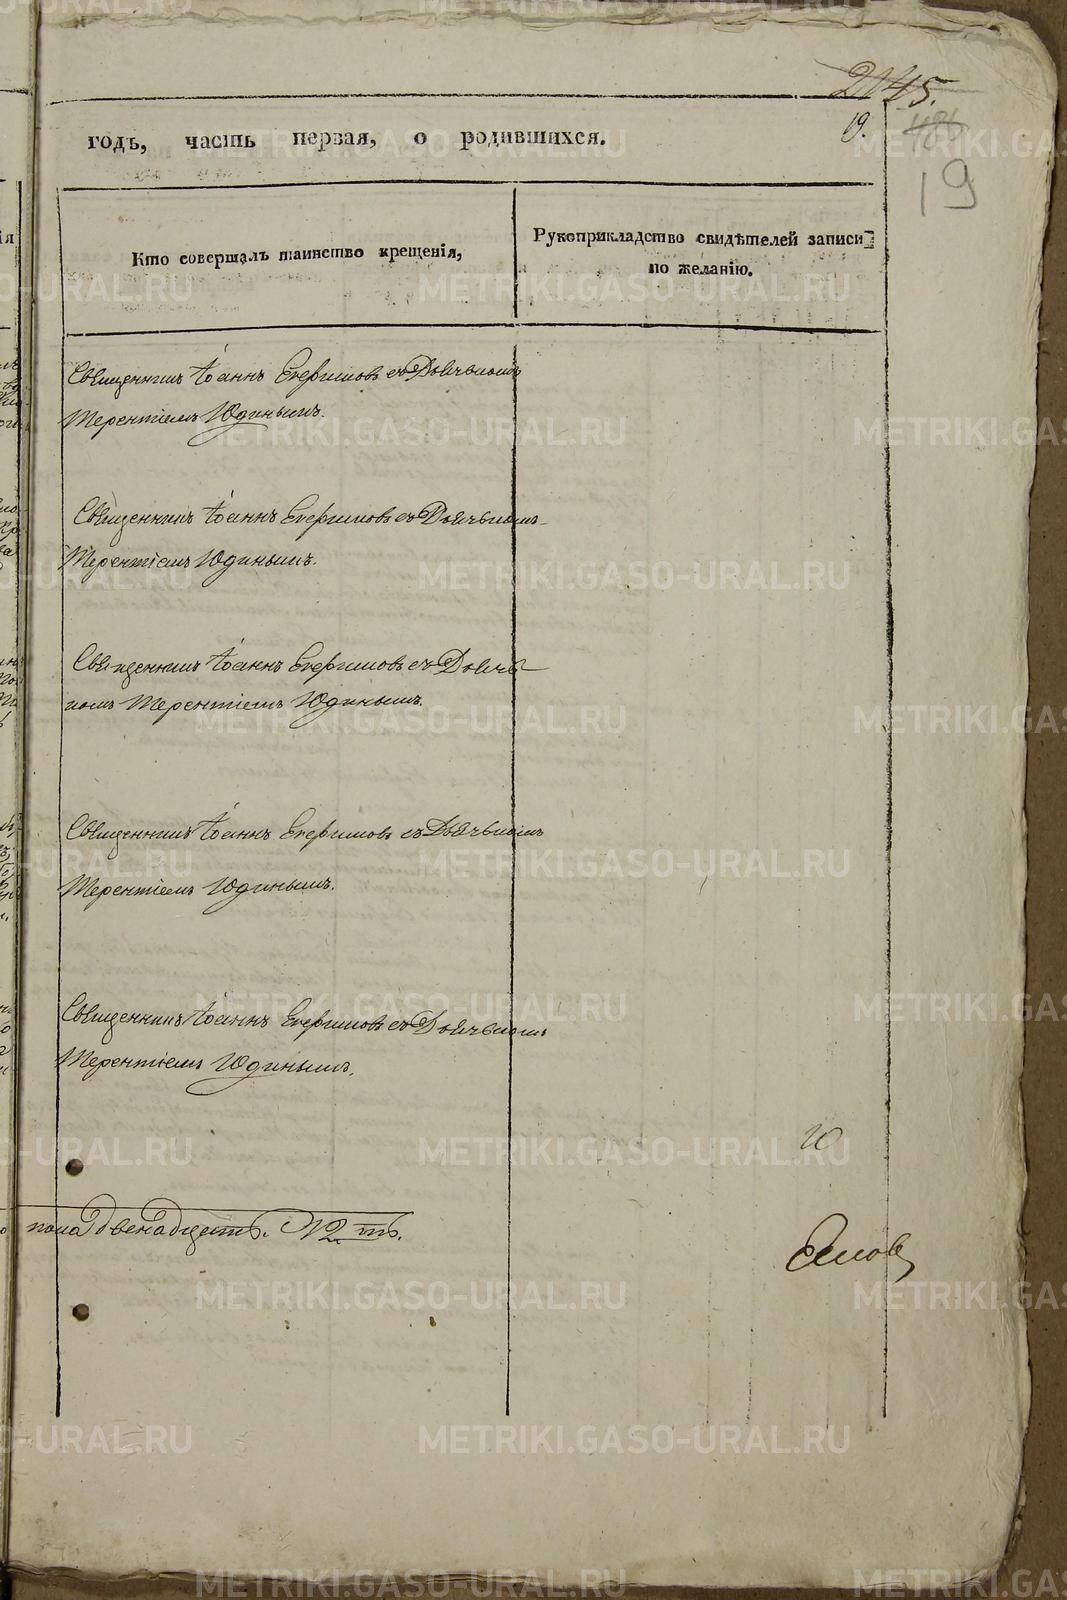 2145.
годъ, часть первая, о родившихся.
19.
486
19
Кто совершалъ таинство крещенія,
Рукоприкладство свидѣтелей записи
по желанію.
Священникъ Іоаннъ Стефановъ съ Дьячкомъ
Терентіемъ Юдинымъ.
Священникъ Іоаннъ Стефановъ съ Дьячкомъ
Терентіемъ Юдинымъ.
Священникъ Іоаннъ Стефановъ съ Дьяч
комъ Терентіемъ Юдинымъ.
Священникъ Іоаннъ Стефановъ съ Дьячкомъ
Терентіемъ Юдинымъ.
Священникъ Іоаннъ Стефановъ съ Дьячкомъ
Терентіемъ Юдинымъ.
пола двенадцать. 12-ть.
METRIKI.GASO-URAL.RU